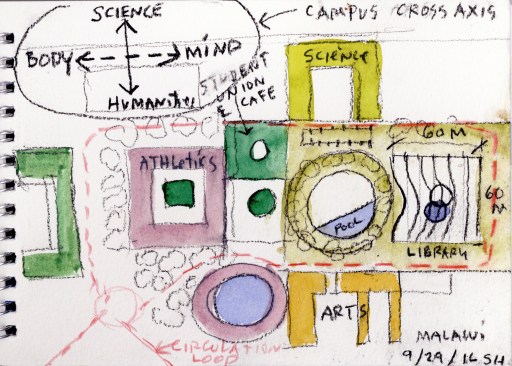 SCIENCE
CAMPUS CROSS AXIS
BODY
MIND
HUMANITIES
STUDENT
UNION
& CAFE
SCIENCE
ATHLETICS
60M
60
M
POOL
LIBRARY
ARTS
CIRCULATION
LOOP
MALAWI
9/29/16 SH